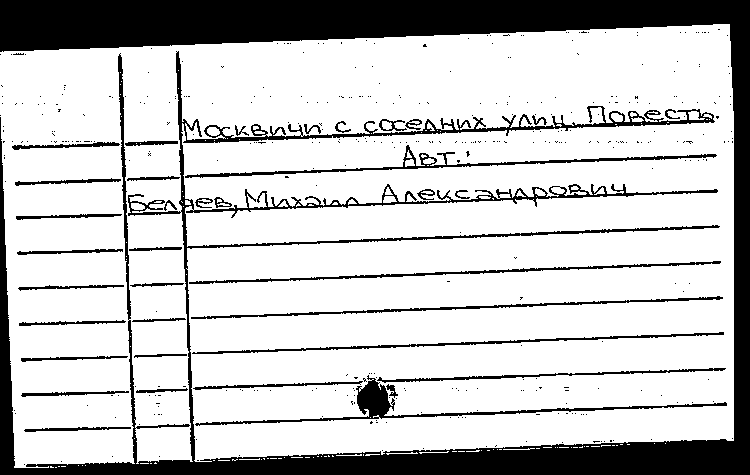 Москвичи с соседних улиц. Повесть.
Авт.:
Беляев, Михаил Александрович